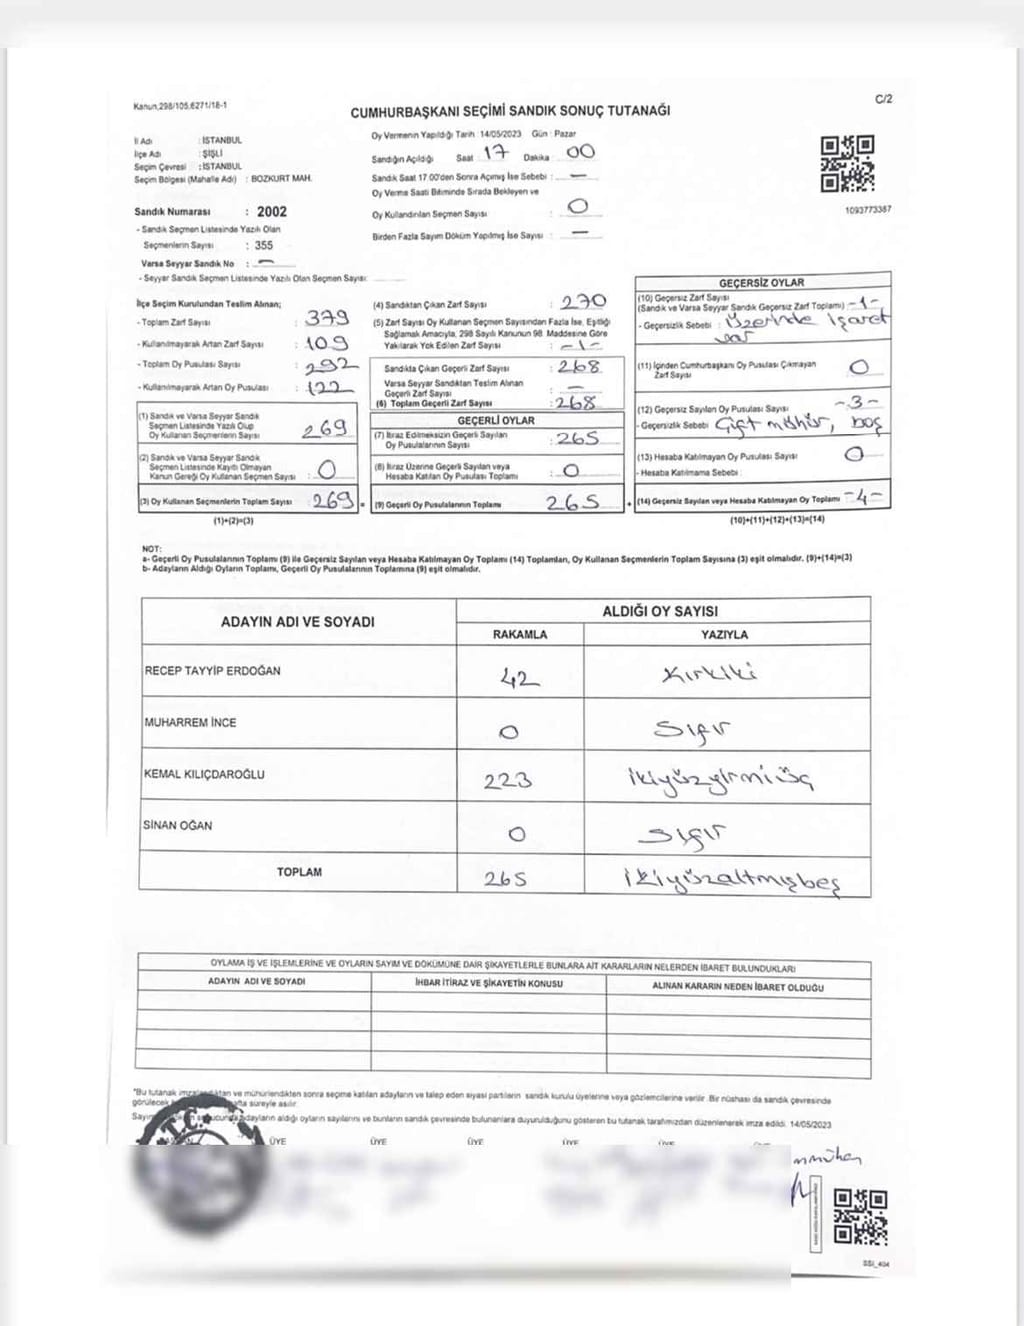 Kanun,298/105,6271/18-1
C/2
CUMHURBAŞKANI SEÇİMİ SANDIK SONUÇ TUTANAĞI
İl Adı : İSTANBUL
İlçe Adı : ŞİŞLİ
Seçim Çevresi : İSTANBUL
Seçim Bölgesi (Mahalle Adı) : BOZKURT MAH.
Sandık Numarası : 2002
- Sandık Seçmen Listesinde Yazılı Olan
Seçmenlerin Sayısı : 355
Varsa Seyyar Sandık No : —
- Seyyar Sandık Seçmen Listesinde Yazılı Olan Seçmen Sayısı:
Oy Vermenin Yapıldığı Tarih : 14/05/2023 Gün : Pazar
Sandığın Açıldığı Saat 17 Dakika 00
Sandık Saat 17.00'den Sonra Açılmış İse Sebebi : —
Oy Verme Saati Bitiminde Sırada Bekleyen ve
Oy Kullandırılan Seçmen Sayısı : 0
Birden Fazla Sayım Döküm Yapılmış İse Sayısı : —
1093773387
İlçe Seçim Kurulundan Teslim Alınan;
- Toplam Zarf Sayısı : 379
- Kullanılmayarak Artan Zarf Sayısı : 109
- Toplam Oy Pusulası Sayısı : 292
- Kullanılmayarak Artan Oy Pusulası : 122
(1) Sandık ve Varsa Seyyar Sandık
Seçmen Listesinde Yazılı Olup
Oy Kullanan Seçmenlerin Sayısı : 269
(2) Sandık ve Varsa Seyyar Sandık
Seçmen Listesinde Kayıtlı Olmayan
Kanun Gereği Oy Kullanan Seçmen Sayısı : 0
(3) Oy Kullanan Seçmenlerin Toplam Sayısı : 269 =
(1)+(2)=(3)
(4) Sandıktan Çıkan Zarf Sayısı : 270
(5) Zarf Sayısı Oy Kullanan Seçmen Sayısından Fazla İse, Eşitliği
Sağlamak Amacıyla, 298 Sayılı Kanunun 98. Maddesine Göre
Yakılarak Yok Edilen Zarf Sayısı : -1-
Sandıkta Çıkan Geçerli Zarf Sayısı : 268
Varsa Seyyar Sandıktan Teslim Alınan
Geçerli Zarf Sayısı : —
(6) Toplam Geçerli Zarf Sayısı : 268
GEÇERLİ OYLAR
(7) İtiraz Edilmeksizin Geçerli Sayılan
Oy Pusulalarının Sayısı : 265
(8) İtiraz Üzerine Geçerli Sayılan veya
Hesaba Katılan Oy Pusulası Toplamı : 0
(9) Geçerli Oy Pusulalarının Toplamı : 265 +
GEÇERSİZ OYLAR
(10) Geçersiz Zarf Sayısı
(Sandık ve Varsa Seyyar Sandık Geçersiz Zarf Toplamı) -1-
- Geçersizlik Sebebi : Üzerinde işaret
var
(11) İçinden Cumhurbaşkanı Oy Pusulası Çıkmayan
Zarf Sayısı : 0
(12) Geçersiz Sayılan Oy Pusulası Sayısı : -3-
- Geçersizlik Sebebi : Çift mühür, boş
(13) Hesaba Katılmayan Oy Pusulası Sayısı : 0
- Hesaba Katılmama Sebebi :
(14) Geçersiz Sayılan veya Hesaba Katılmayan Oy Toplamı -4-
(10)+(11)+(12)+(13)=(14)
NOT:
a- Geçerli Oy Pusulalarının Toplamı (9) ile Geçersiz Sayılan veya Hesaba Katılmayan Oy Toplamı (14) Toplamları, Oy Kullanan Seçmenlerin Toplam Sayısına (3) eşit olmalıdır. (9)+(14)=(3)
b- Adayların Aldığı Oyların Toplamı, Geçerli Oy Pusulalarının Toplamına (9) eşit olmalıdır.
ADAYIN ADI VE SOYADI ALDIĞI OY SAYISI
RAKAMLA YAZIYLA
RECEP TAYYİP ERDOĞAN 42 kırkiki
MUHARREM İNCE 0 Sıfır
KEMAL KILIÇDAROĞLU 223 ikiyüzyirmiüç
SİNAN OĞAN 0 Sıfır
TOPLAM 265 ikiyüzaltmışbeş
OYLAMA İŞ VE İŞLEMLERİNE VE OYLARIN SAYIM VE DÖKÜMÜNE DAİR ŞİKAYETLERLE BUNLARA AİT KARARLARIN NELERDEN İBARET BULUNDUKLARI
ADAYIN ADI VE SOYADI İHBAR İTİRAZ VE ŞİKAYETİN KONUSU ALINAN KARARIN NEDEN İBARET OLDUĞU
"Bu tutanak ve mühürlendikten sonra seçime katılan adayların ve talep eden siyasi partilerin sandık kurulu üyelerine veya gözlemcilerine verilir. Bir nüshası da sandık çevresinde
görülecek hafta süreyle asılır.
adayların aldığı oyların sayılarını ve bunların sandık çevresinde bulunanlara duyurulduğunu gösteren bu tutanak tarafımızdan düzenlenerek imza edildi. 14/05/2023
T.C.
ÜYE ÜYE ÜYE ÜYE ÜYE
SSİ_404